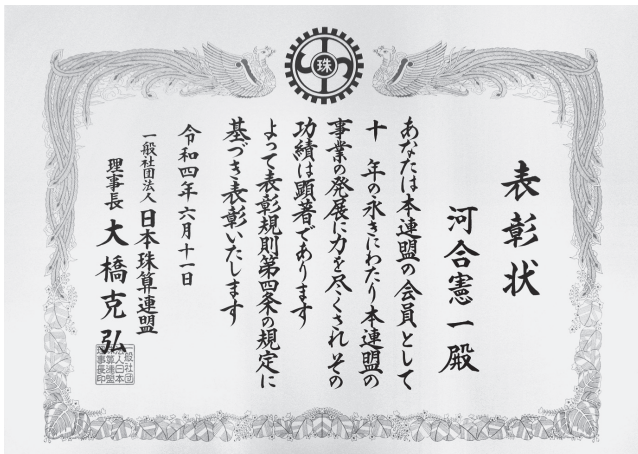 珠
表彰状
河合憲一殿
あなたは本連盟の会員として
十 年の永きにわたり本連盟の
事業の発展に力を尽くされ その
功績は顕著であります
よって表彰規則第四条の規定に
基づき表彰いたします
令和四年六月十一日
一般社団法人 日本珠算連盟
理事長 大橋克弘
一般社団
法人日本
珠算連盟
理事長印